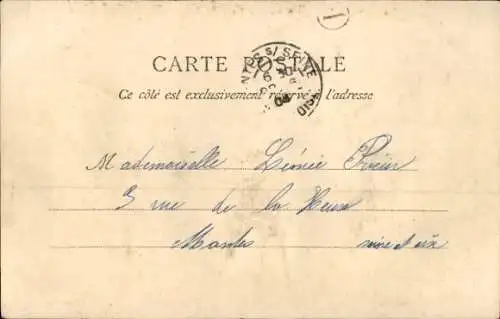 1
CARTE POSTALE
Ce côté est exclusivement réservé à l'adresse
Mademoiselle Léonie
3 rue de la
Mantes Seine et Oise